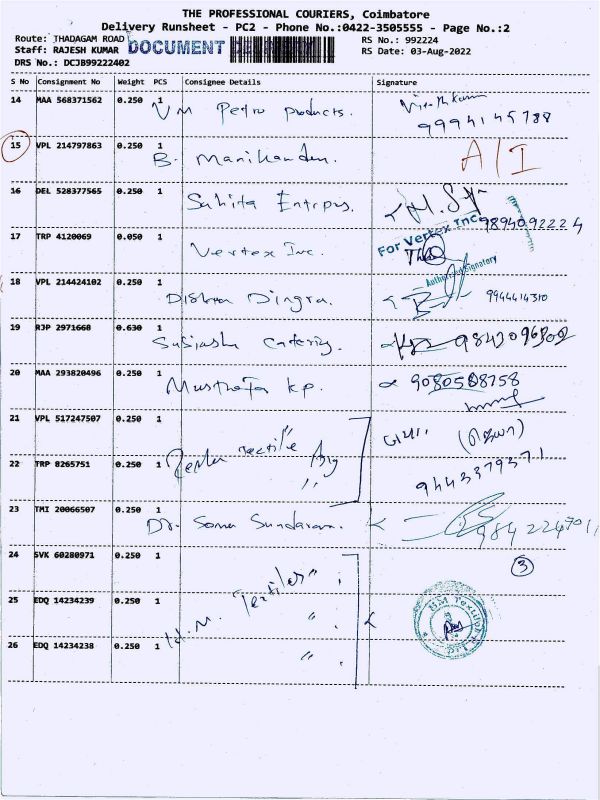 THE PROFESSIONAL COURIERS, Coimbatore
Delivery Runsheet - PC2 - Phone No.:0422-3505555 - Page No.:2
Route: THADAGAM ROAD
RS No.: 992224
Staff: RAJESH KUMAR DOCUMENT
RS Date: 03-Aug-2022
DRS No.: DCJB99222402
S No Consignment No Weight PCS Consignee Details Signature
14 MAA 568371562 0.250 1 VM Petro products.
9994145788
15 VPL 214797863 0.250 1 B. Manikandan. A/I
16 DEL 528377565 0.250 1 Sahita
9894092224
17 TRP 4120069 0.050 1 Vertex Inc. For Vertex Inc
Authorised Signatory
18 VPL 214424102 0.250 1 9944414310
19 RJP 2971660 0.630 1
20 MAA 293820496 0.250 1 Mustrafa K.P.
21 VPL 517247507 0.250 1
22 TRP 8265751 0.250 1 " 9443379371
23 TMI 20066507 0.250 1 Dr. Soma Sundaram.
24 SVK 60280971 0.250 1 Textiles 3
25 EDQ 14234239 0.250 1 "
26 EDQ 14234238 0.250 1 "